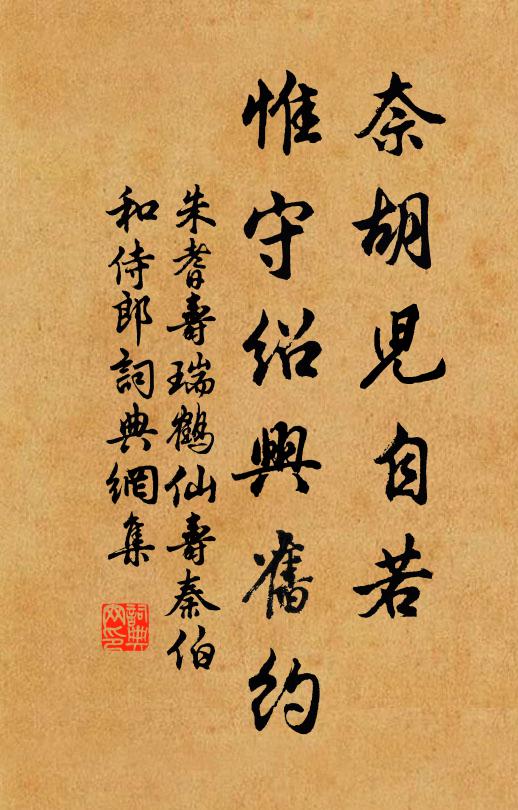 奈胡兒自若
惟守紹興舊約
朱耆壽瑞鶴仙壽秦伯
和侍郎詞典網集
詞典網印